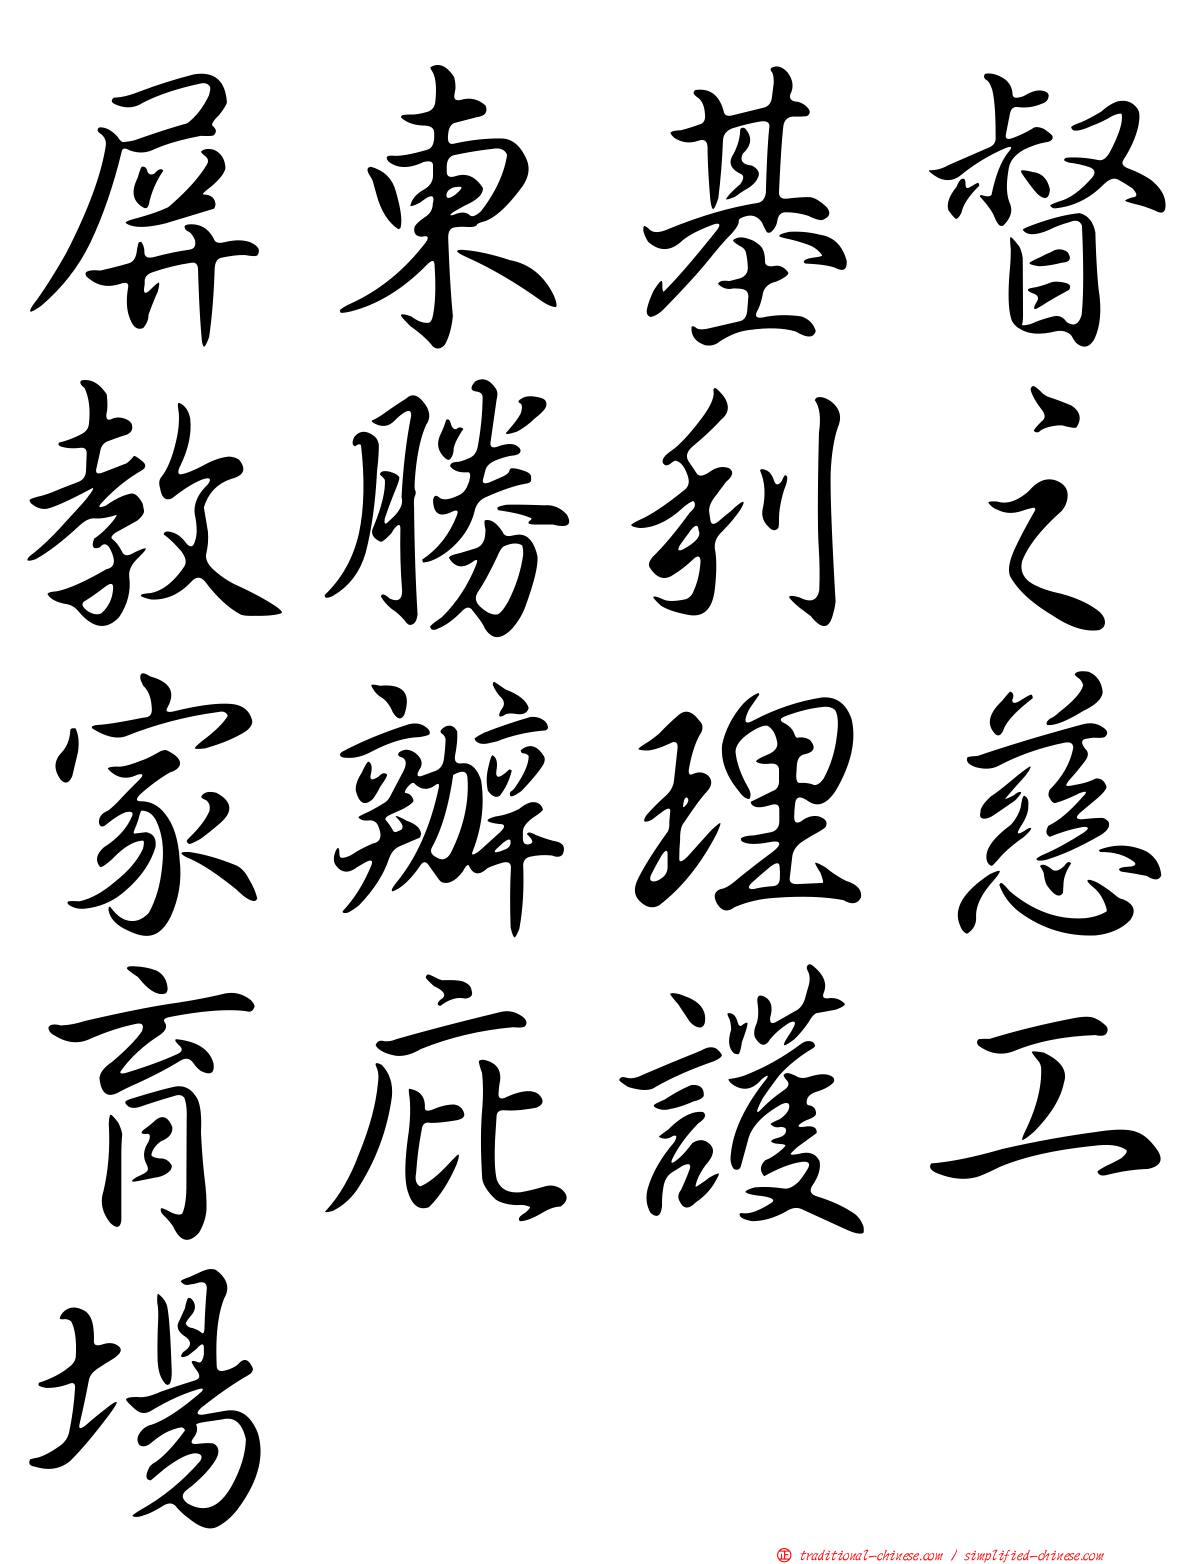 屏東基督
教勝利之
家辦理慈
育庇護工
場
正 traditional-chinese.com / simplified-chinese.com